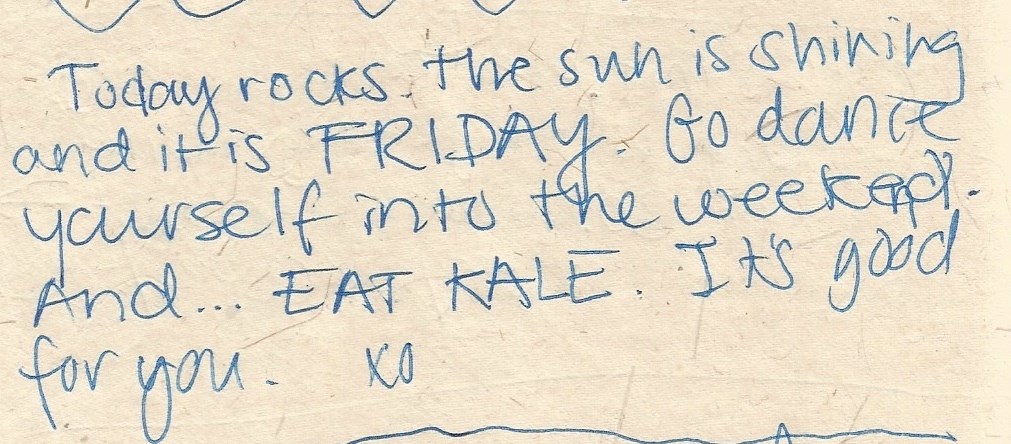 Today rocks. the sun is shining
and it is FRIDAY. Go dance
yourself into the weekend.
And... EAT KALE. It's good
for you. xo